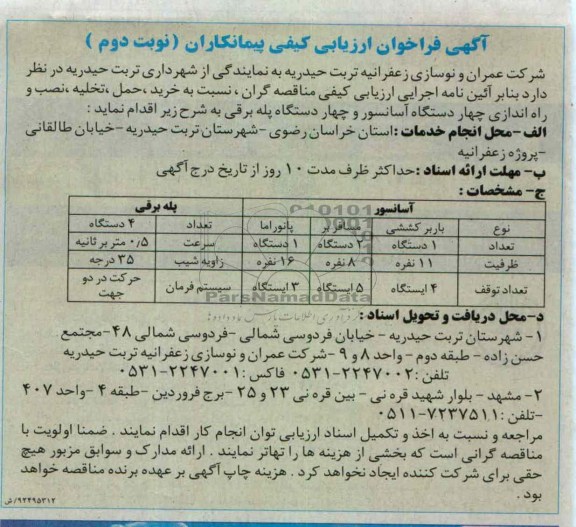 آگهی فراخوان ارزیابی کیفی پیمانکاران (نوبت دوم)
شرکت عمران و نوسازی زعفرانیه تربت حیدریه به نمایندگی از شهرداری تربت حیدریه در نظر
دارد بنابر آئین نامه اجرایی ارزیابی کیفی مناقصه گران ، نسبت به خرید ،حمل ،تخلیه ،نصب و
راه اندازی چهار دستگاه آسانسور و چهار دستگاه پله برقی به شرح زیر اقدام نماید :
الف -محل انجام خدمات :استان خراسان رضوی -شهرستان تربت حیدریه -خیابان طالقانی
-پروژه زعفرانیه
ب- مهلت ارائه اسناد :حداکثر ظرف مدت ۱۰ روز از تاریخ درج آگهی
ج- مشخصات :
آسانسور پله برقی
نوع باربر کششی مسافر بر پانوراما تعداد ۴ دستگاه
تعداد ۱ دستگاه ۲ دستگاه ۱ دستگاه سرعت ۰/۵ متر بر ثانیه
ظرفیت ۱۱ نفره ۸ نفره ۱۶ نفره زاویه شیب ۳۵ درجه
تعداد توقف ۴ ایستگاه ۵ ایستگاه ۳ ایستگاه سیستم فرمان حرکت در دو
جهت
ParsNamadData
د-محل دریافت و تحویل اسناد :
۱- شهرستان تربت حیدریه - خیابان فردوسی شمالی -فردوسی شمالی ۴۸-مجتمع
حسن زاده - طبقه دوم - واحد ۸ و ۹ -شرکت عمران و نوسازی زعفرانیه تربت حیدریه
تلفن :۲۲۴۷۰۰۲-۰۵۳۱ فاکس :۲۲۴۷۰۰۱-۰۵۳۱
۲- مشهد - بلوار شهید قره نی - بین قره نی ۲۳ و ۲۵ -برج فروردین -طبقه ۴ -واحد ۴۰۷
-تلفن :۷۲۳۷۵۱۱-۰۵۱۱
مراجعه و نسبت به اخذ و تکمیل اسناد ارزیابی توان انجام کار اقدام نمایند . ضمنا اولویت با
مناقصه گرانی است که بخشی از هزینه ها را تهاتر نمایند . ارائه مدارک و سوابق مزبور هیچ
حقی برای شرکت کننده ایجاد نخواهد کرد . هزینه چاپ آگهی بر عهده برنده مناقصه خواهد
بود .
۹۲۲۹۵۳۱۲/ش